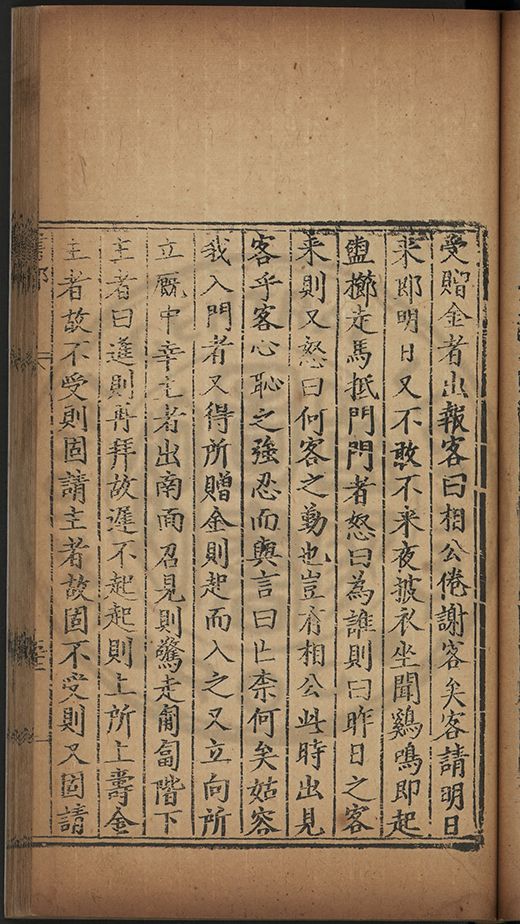 受贈金者出報客曰相公倦謝客矣客請明日
来耶明日又不敢不来夜披衣坐聞雞鳴即起
盥櫛走馬抵門門者怒曰為誰則曰昨日之客
来則又怒曰何客之勤也豈有相公此時出見
客乎客心恥之強忍而與言曰亡柰何矣姑容
我入門者又得所贈金則起而入之又立向所
立廐中幸主者出南面召見則驚走匍匐階下
主者曰進則再拜故遲不起起則上所上壽金
主者故不受則固請主者故固不受則又固請